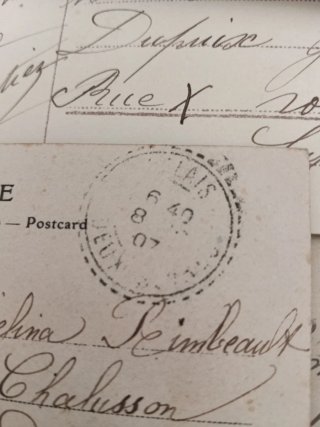 Dupuix
Rue X 20
E
— Postcard
LAIS
6 40
8
07
VEUX
élina Rimbeault
Chalusson